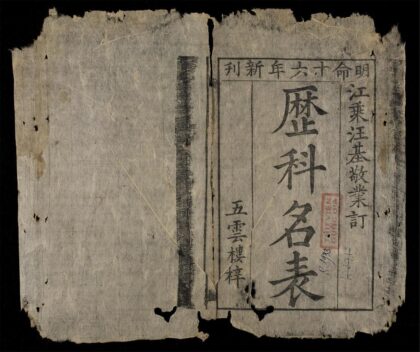 明命十六年新刊
江乘汪基敬業訂
歴科名表
五雲樓梓